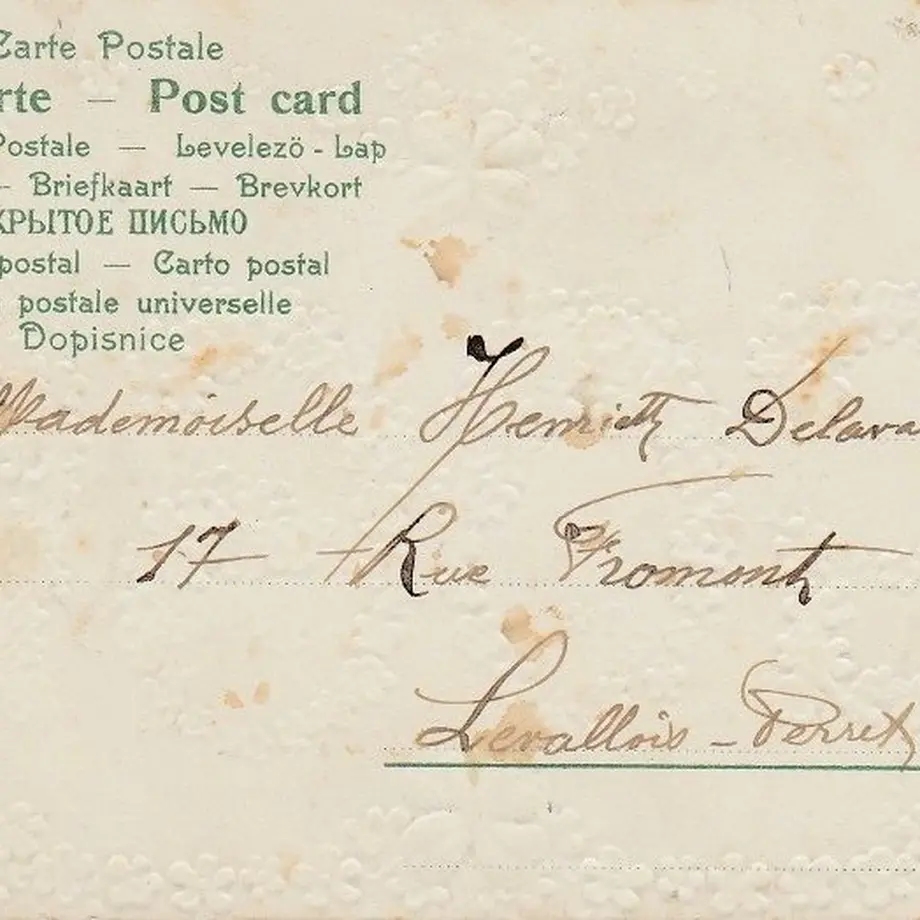 Carte Postale
rte — Post card
Postale — Levelezö - Lap
— Briefkaart — Brevkort
КРЫТОЕ ПИСЬМО
postal — Carto postal
postale universelle
Dopisnice
Mademoiselle Henriett Delava
17 Rue Fromont
Levallois - Perret